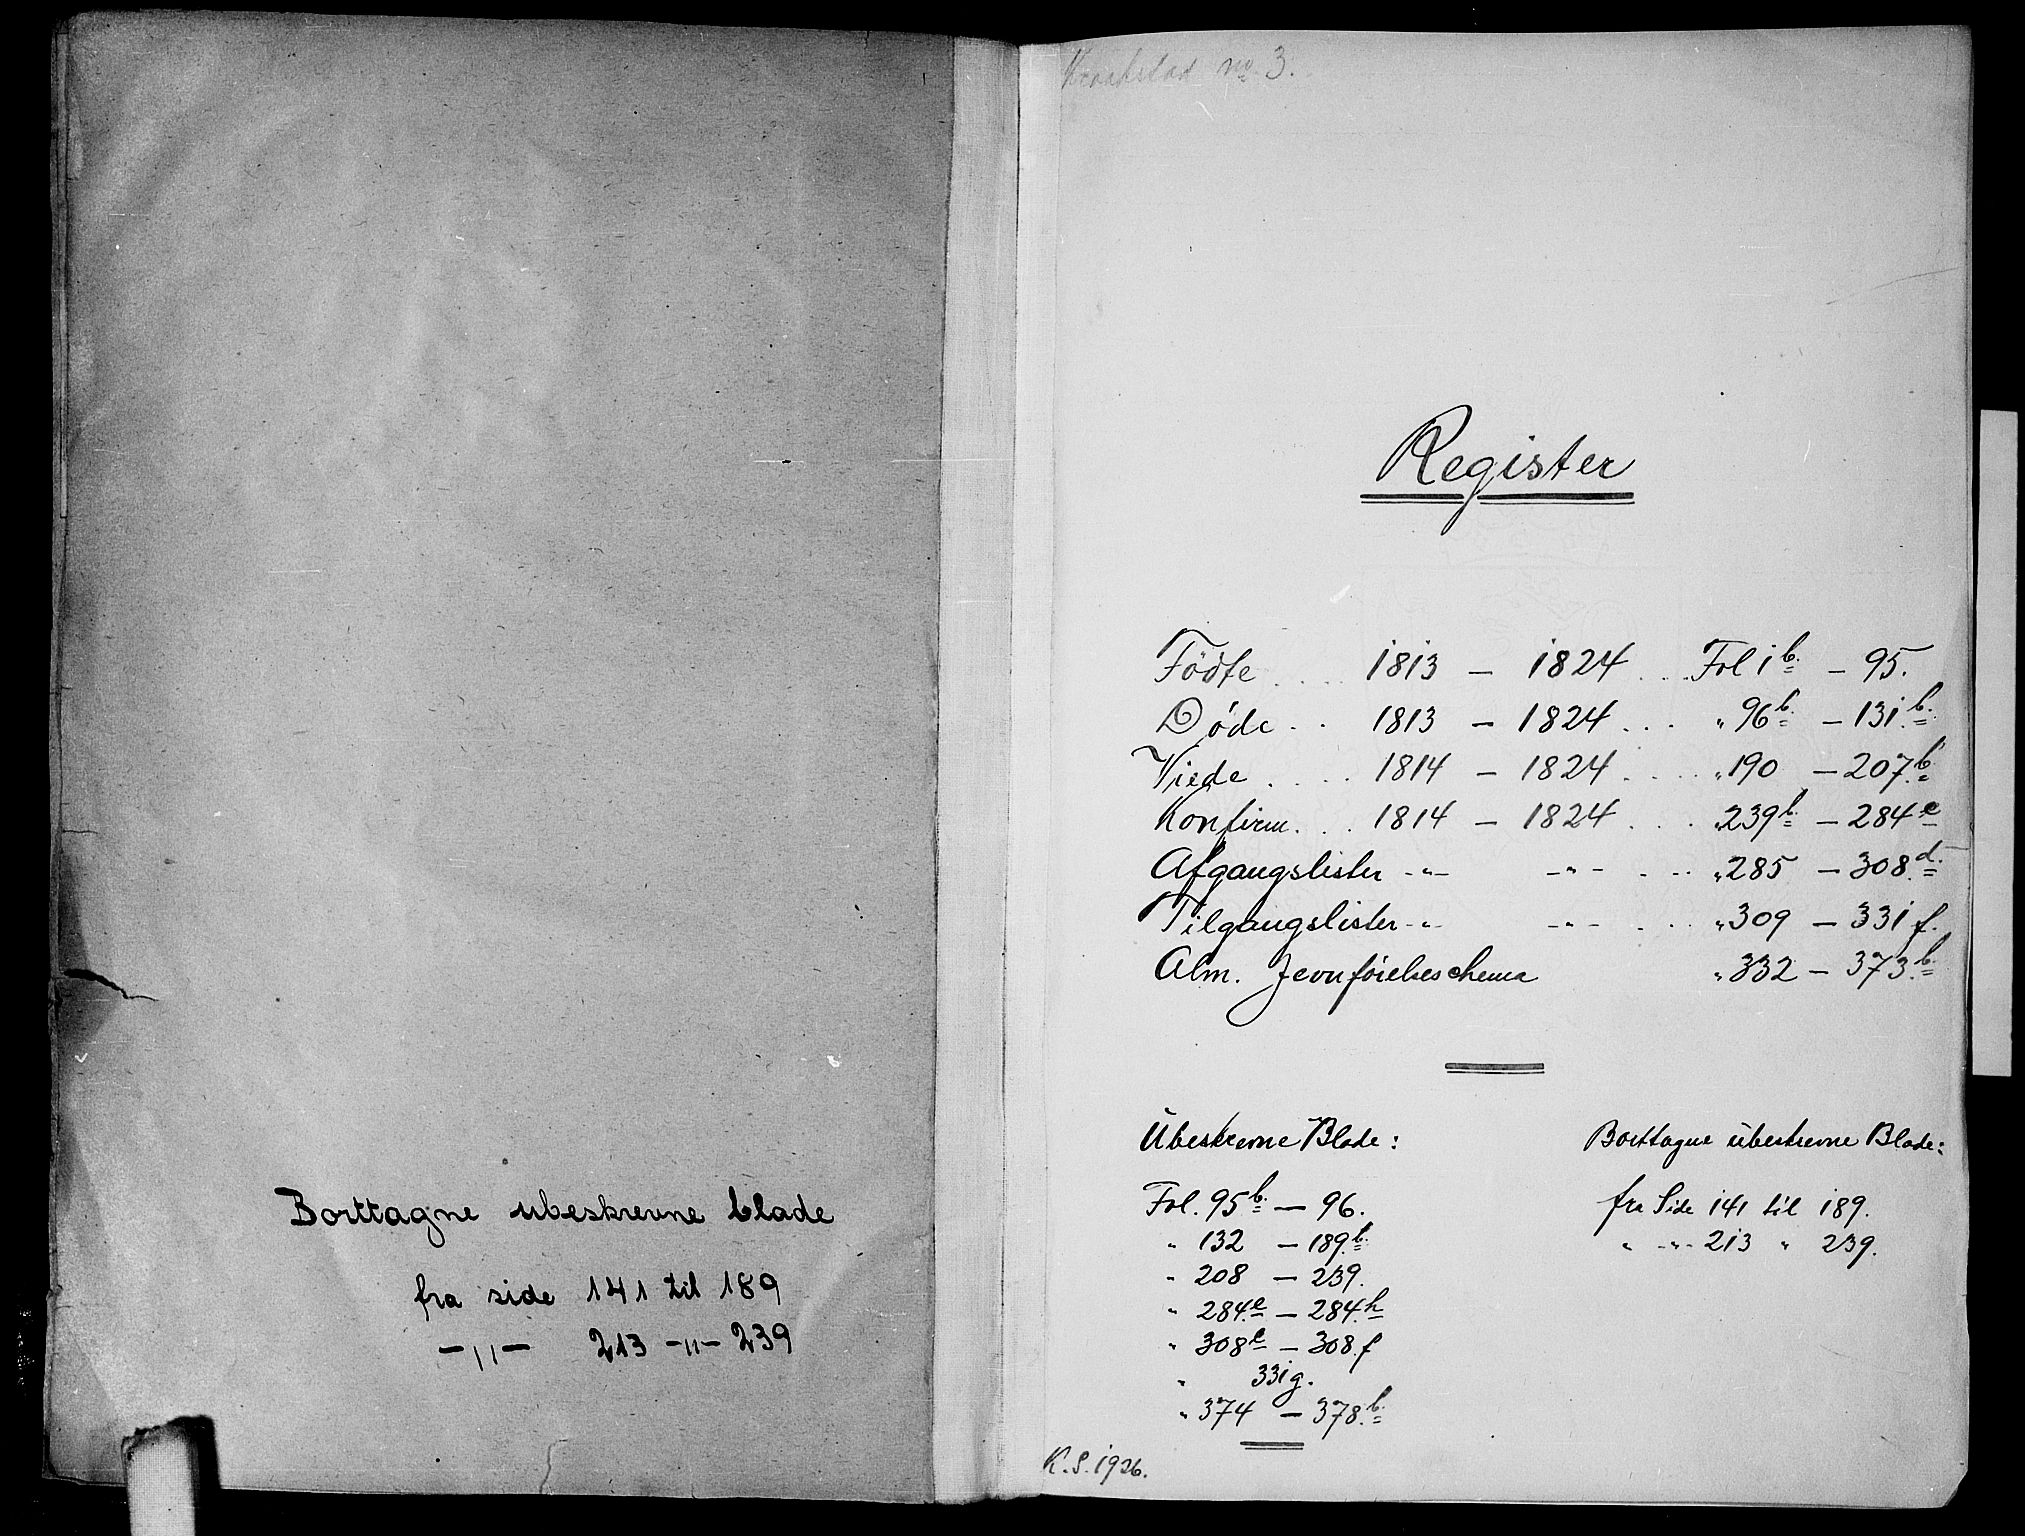 Borttagne ubeskrevne blade
fra side 141 til 189
—„— 213 —„— 239
Kraakstad no 3.
Register
Födte .... 1813 — 1824 ... Fol 1b. — 95.
Døde .. 1813 — 1824 ... „ 96b. — 131b.
Viede .... 1814 — 1824 .... „ 190 — 207b.
Konfirm. .. 1814 — 1824 ... „ 239b. — 284e
Afgangslister -„- -„- ... „ 285 — 308d.
Tilgangslister -„- -„- ... „ 309 — 331f.
Alm. Jevnförelseschema „ 332 — 373b.
Ubeskrevne Blade:
Fol. 95b. — 96.
„ 132 — 189b.
„ 208 — 239.
„ 284e — 284h
„ 308e — 308f
„ 331g.
„ 374 — 378b.
Borttagne ubeskrevne Blade:
fra Side 141 til 189.
„ -„- 213 „ 239.
K.S. 1926.